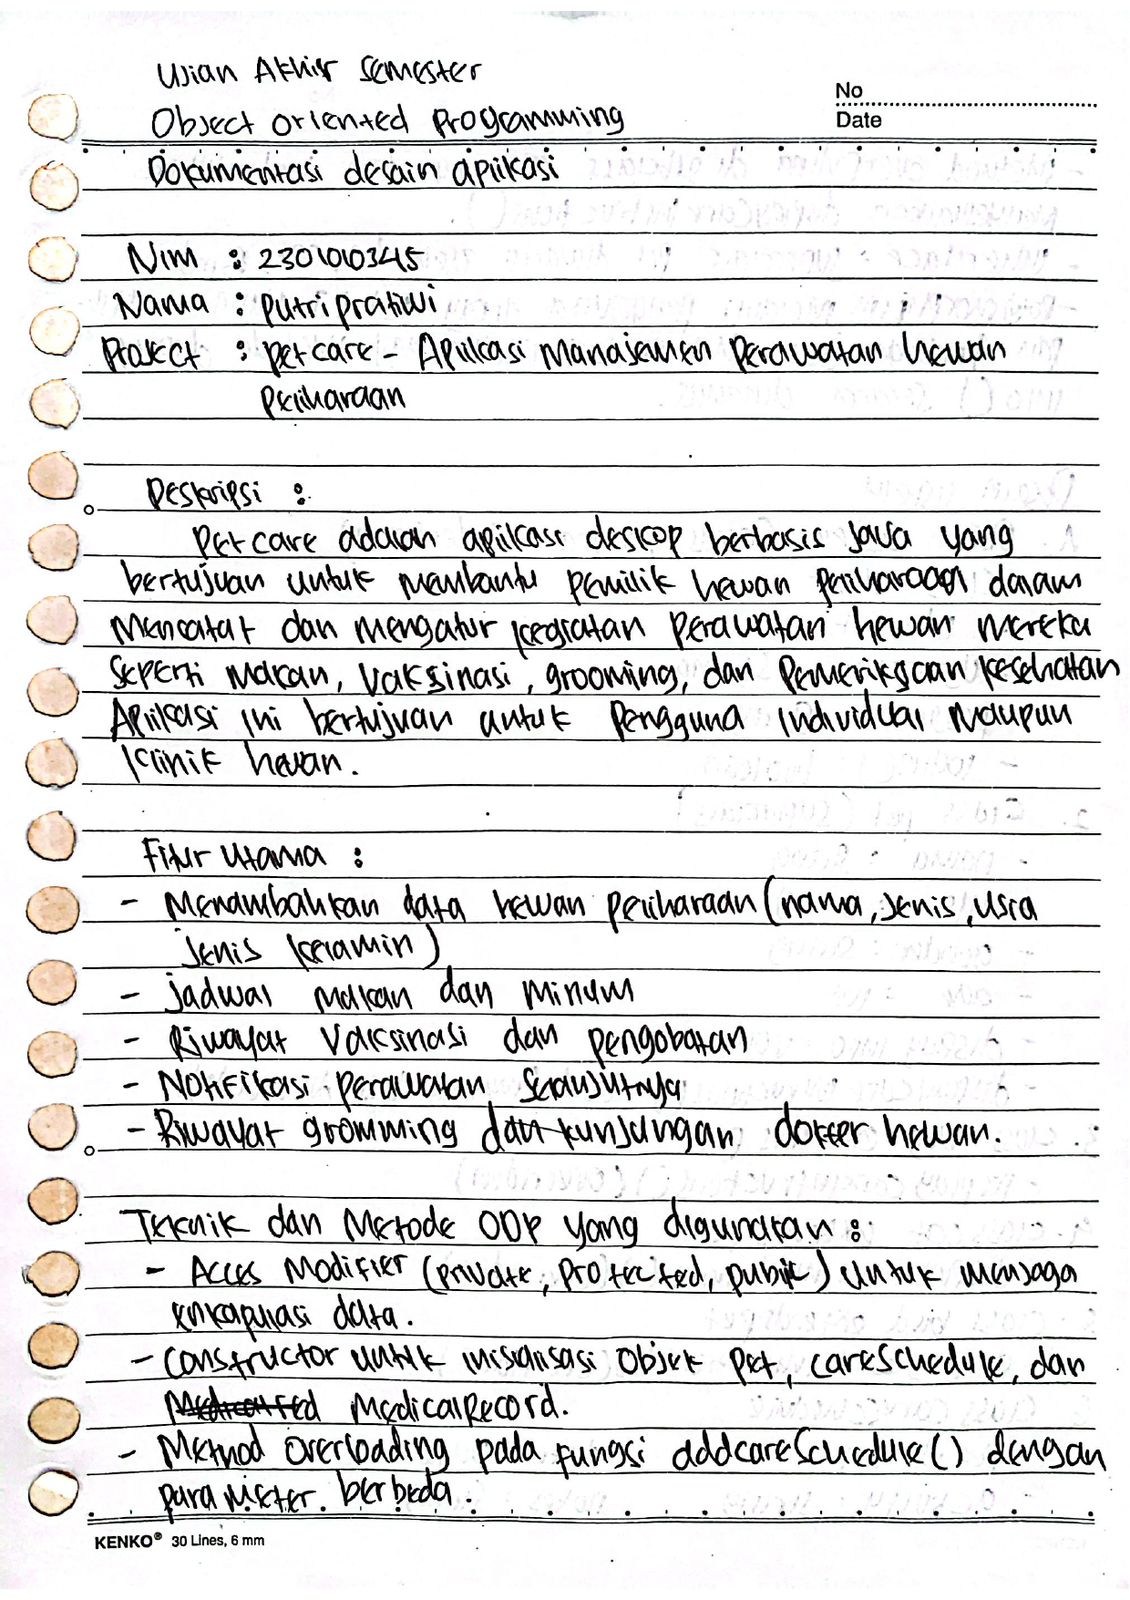 Ujian Akhir Semester
Object oriented programming
No
Date
Dokumentasi desain aplikasi
Nim : 2301010345
Nama : Putri pratiwi
Project : petcare - Aplikasi Manajemen perawatan hewan
Peliharaan
Deskripsi :
Petcare adalah aplikasi desktop berbasis Java yang
bertujuan untuk membantu pemilik hewan peliharaan dalam
Mencatat dan mengatur kegiatan perawatan hewan mereka
seperti makan, vaksinasi, grooming, dan pemeriksaan kesehatan
Aplikasi ini bertujuan untuk pengguna individual maupun
klinik hewan.
Fitur Utama :
- Menambahkan data hewan peliharaan (nama, jenis, usia
jenis kelamin)
- jadwal makan dan minum
- Riwayat Vaksinasi dan pengobatan
- Notifikasi perawatan selanjutnya
- Riwayat gromming dan kunjungan dokter hewan.
Teknik dan Metode OOP yang digunakan :
- Acces Modifier (private, protected, public) untuk menjaga
enkapulasi data.
- Constructor untuk inisialisasi Objek Pet, careSchedule, dan
MedicalRecord.
- Method Overloading pada fungsi addcareSchedule() dengan
parameter berbeda.
KENKO® 30 Lines, 6 mm